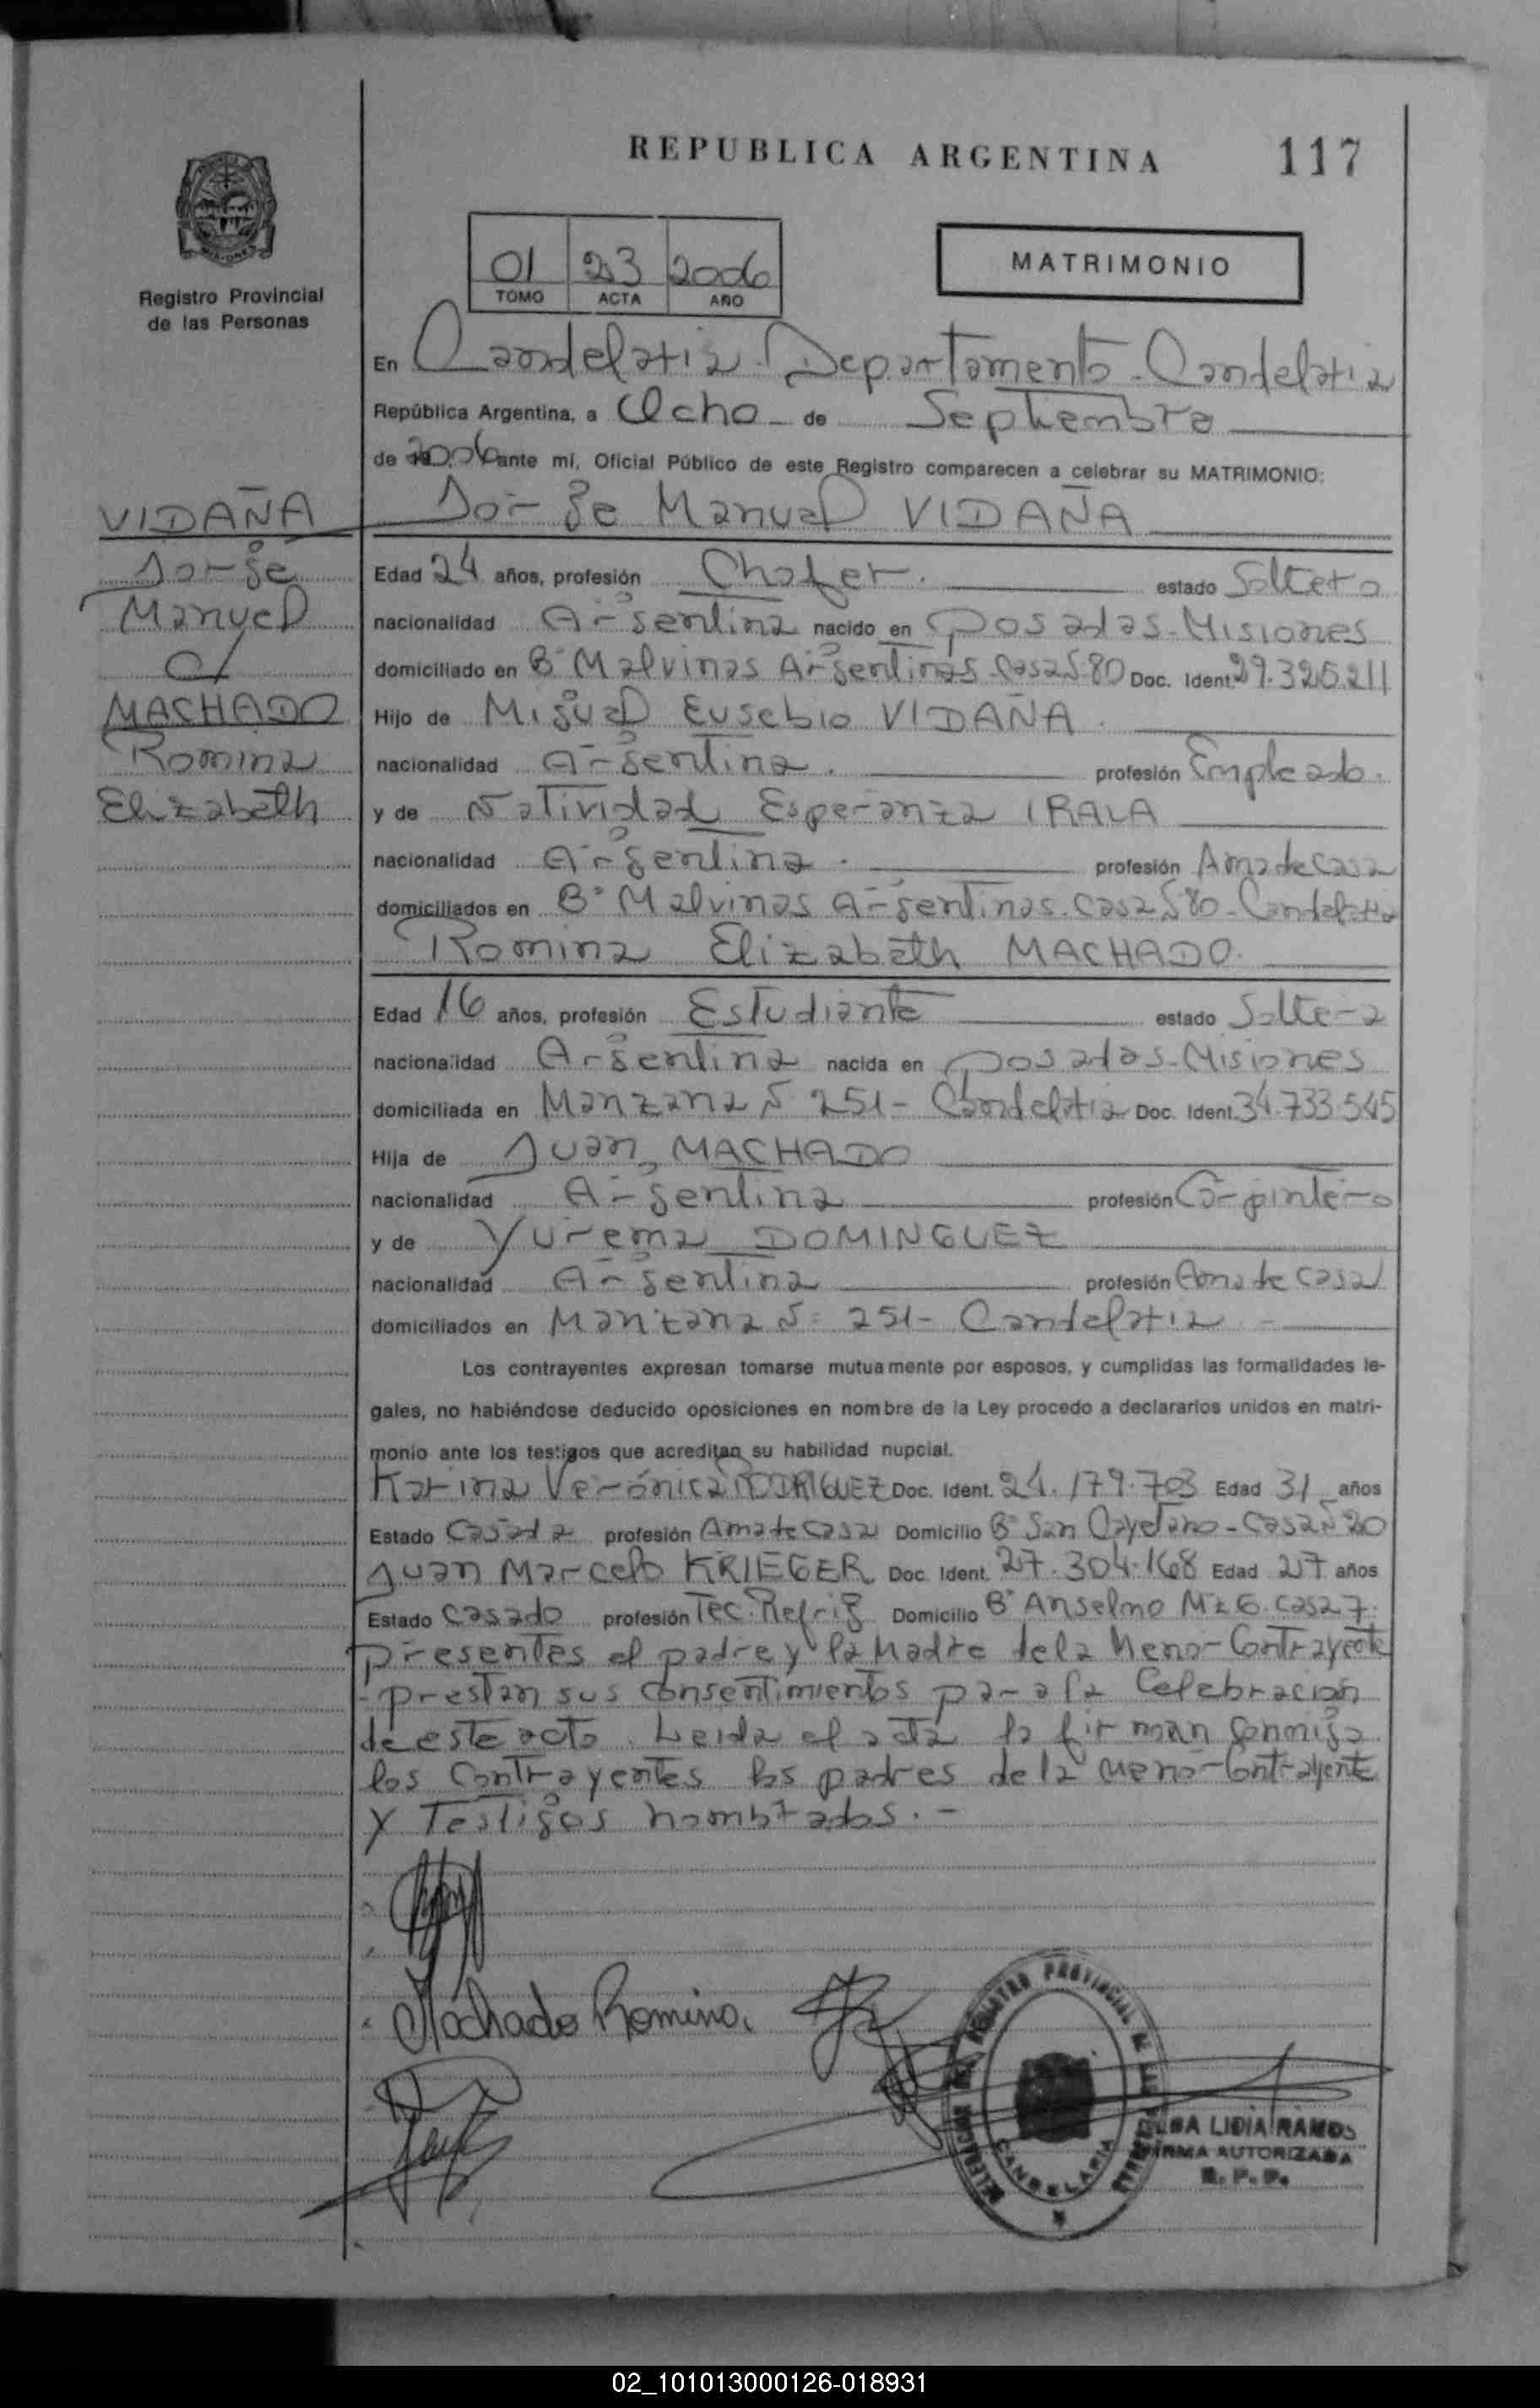 REPUBLICA ARGENTINA 117
01 23 2006
TOMO ACTA AÑO
MATRIMONIO
Registro Provincial
de las Personas
En Candelaria. Departamento. Candelaria
República Argentina, a Ocho de Septiembre
de 2006 ante mí, Oficial Público de este Registro comparecen a celebrar su MATRIMONIO:
VIDAÑA
Jorge
Manuel
c/
MACHADO
Romina
Elizabeth
Jorge Manuel VIDAÑA
Edad 24 años, profesión Chofer. estado Soltero
nacionalidad Argentina nacido en Posadas-Misiones
domiciliado en B° Malvinas Argentinas-Casa N°80 Doc. Ident. 29.326.211
Hijo de Miguel Eusebio VIDAÑA.
nacionalidad Argentina. profesión Empleado.
y de Natividad Esperanza IRALA
nacionalidad Argentina. profesión Ama de Casa
domiciliados en B° Malvinas Argentinas. Casa N°80-Candelaria
Romina Elizabeth MACHADO.
Edad 16 años, profesión Estudiante estado Soltera
nacionalidad Argentina nacida en Posadas-Misiones
domiciliada en Manzana N° 251- Candelaria Doc. Ident. 34.733.545
Hija de Juan, MACHADO
nacionalidad Argentina profesión Carpintero
y de Yurema DOMINGUEZ
nacionalidad Argentina profesión Ama de Casa
domiciliados en Manzana N° 251- Candelaria -
Los contrayentes expresan tomarse mutuamente por esposos, y cumplidas las formalidades le-
gales, no habiéndose deducido oposiciones en nombre de la Ley procedo a declararlos unidos en matri-
monio ante los testigos que acreditan su habilidad nupcial.
Karina Verónica RODRIGUEZ Doc. Ident. 24.179.703 Edad 31 años
Estado Casada profesión Ama de Casa Domicilio B° San Cayetano-Casa N°20
Juan Marcelo KRIEGER Doc. Ident. 27.304.168 Edad 27 años
Estado Casado profesión Tec. Refrig Domicilio B° Anselmo Mz 6. Casa 7.
Presentes el padre y la Madre de la Menor Contrayente
prestan sus consentimientos para la Celebración
de este acto. Leida el acta la firman conmigo
los Contrayentes los padres de la menor Contrayente
y Testigos nombrados.-
Machado Romina.
REGISTRO PROVINCIAL DE LAS PERSONAS
CANDELARIA
LIDIA RAMOS
FIRMA AUTORIZADA
R. P. P.
02_101013000126-018931